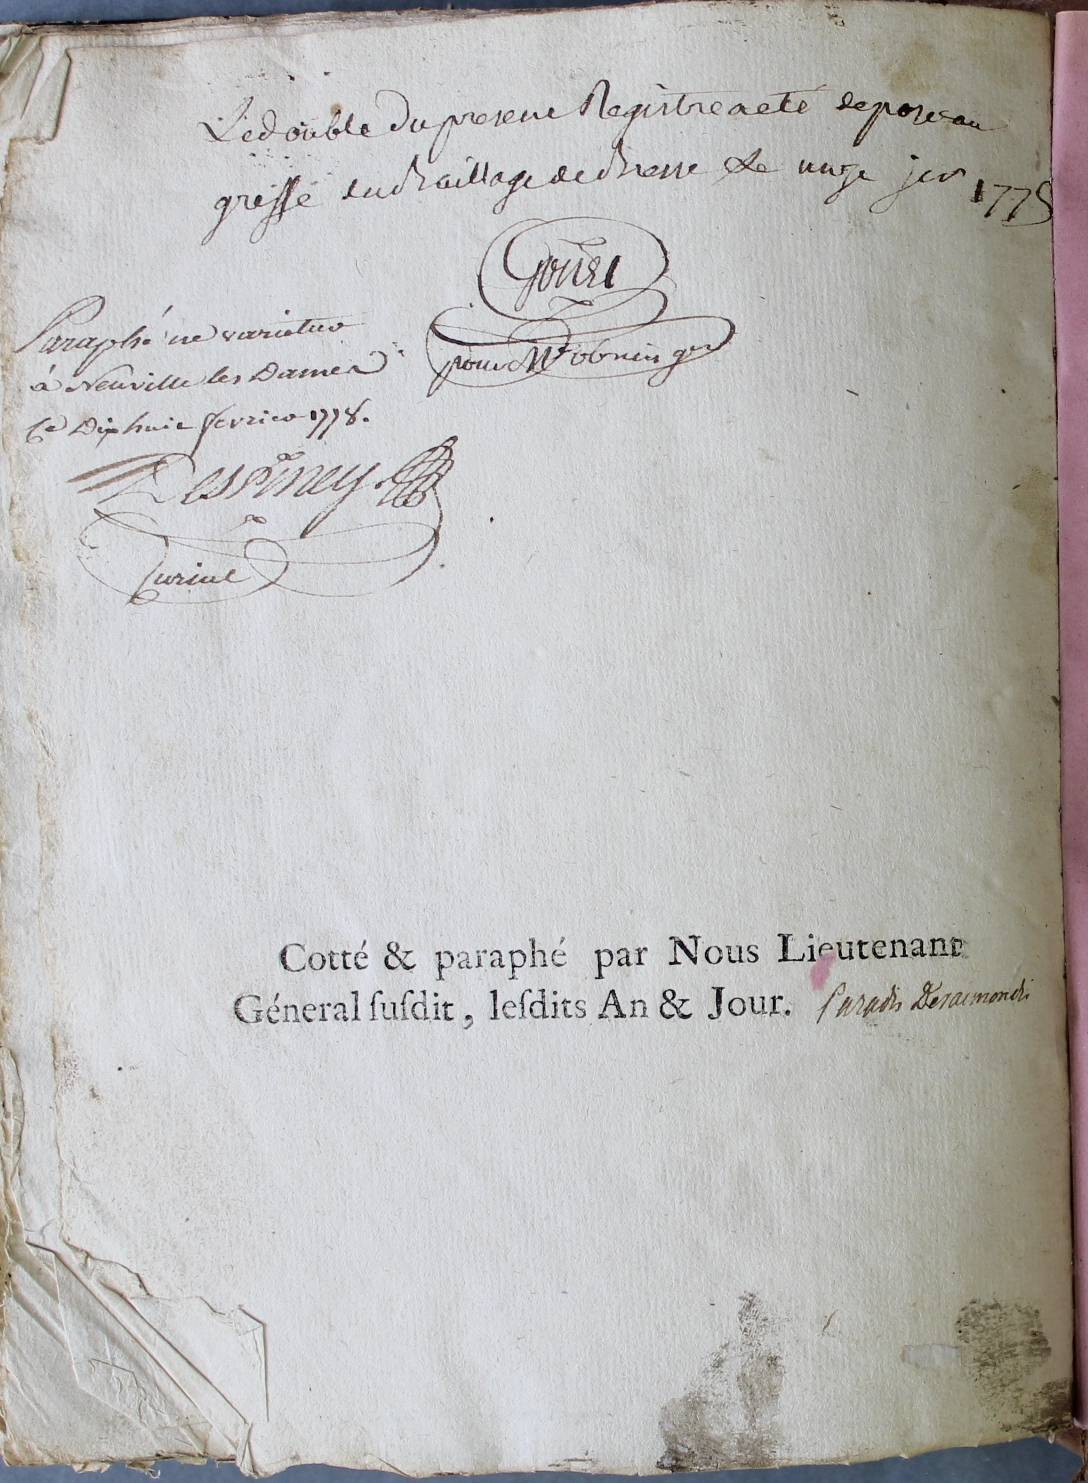 Le double du present Registre a eté deposé au
greffe du Bailliage de Bresse Le unze jer 1778
Paraphé ne varietur
à Neuville les Dames
Ce Dix huit fevrier 1778.
Despiney
curial
Cotté & paraphé par Nous Lieutenant
Géneral ſuſdit, leſdits An & Jour. Paradis Deraimondis